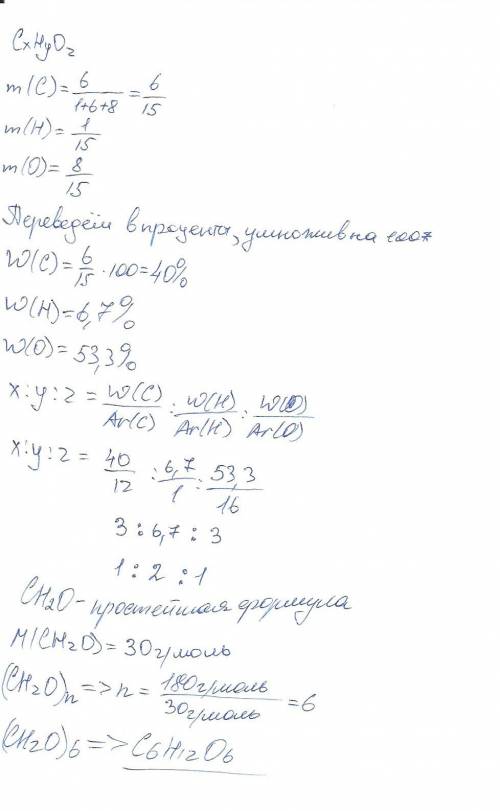 CxHyOz
m(C)= 6/(1+6+8) = 6/15
m(H)= 1/15
m(O)= 8/15
Переведём в проценты, умножив на 100%
W(C)= 6/15 · 100=40%
W(H)=6,7%
W(O)=53,3%
x:y:z = W(C)/Ar(C) : W(H)/Ar(H) : W(O)/Ar(O)
x:y:z = 40/12 : 6,7/1 : 53,3/16
3 : 6,7 : 3
1 : 2 : 1
CH2O - простейшая формула
M(CH2O)= 30г/моль
(CH2O)n => n = 180г/моль/30г/моль =6
(CH2O)6 => C6H12O6